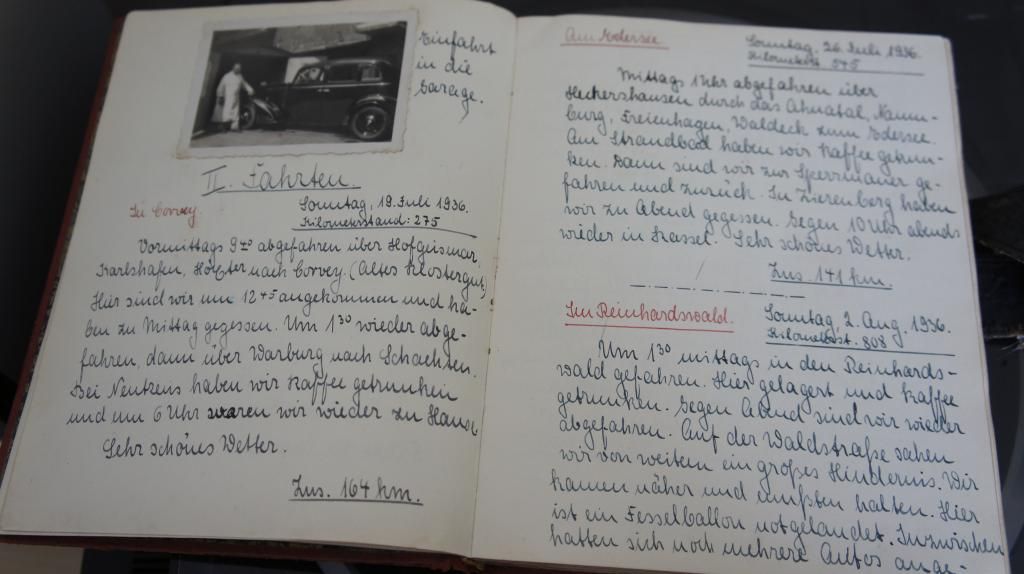 Einfahrt
in die
Garage.
II. Fahrten.
In Corvey.
Sonntag, 19. Juli 1936.
Kilometerstand: 275
Vormittags 9⁴⁰ abgefahren über Hofgeismar,
Karlshafen, Höxter nach Corvey. (Altes Klostergut)
Hier sind wir um 12⁴⁵ angekommen und ha-
ben zu Mittag gegessen. Um 1³⁰ wieder abge-
fahren, dann über Warburg nach Schachten.
Bei Neutzens haben wir Kaffee getrunken
und um 6 Uhr waren wir wieder zu Hause
Sehr schönes Wetter.
Zus. 164 km.
Am Edersee.
Sonntag, 26. Juli 1936.
Kilometerst. 545
Mittags 1 Uhr abgefahren über
Heckershausen durch das Ahnatal, Naum-
burg, Freienhagen, Waldeck zum Edersee.
Am Strandbad haben wir Kaffee getrun-
ken. Dann sind wir zur Sperrmauer ge-
fahren und zurück. In Zierenberg haben
wir zu Abend gegessen. Gegen 10 Uhr abends
wieder in Kassel. Sehr schönes Wetter.
Zus. 141 km.
Im Reinhardswald.
Sonntag, 2. Aug. 1936.
Kilometerst. 808
Um 1³⁰ mittags in den Reinhards-
wald gefahren. Hier gelagert und Kaffee
getrunken. Gegen Abend sind wir wieder
abgefahren. Auf der Waldstraße sahen
wir von weitem ein großes Hindernis. Wir
kamen näher und mußten halten. Hier
ist ein Fesselballon notgelandet. Inzwischen
hatten sich noch mehrere Autos ange-